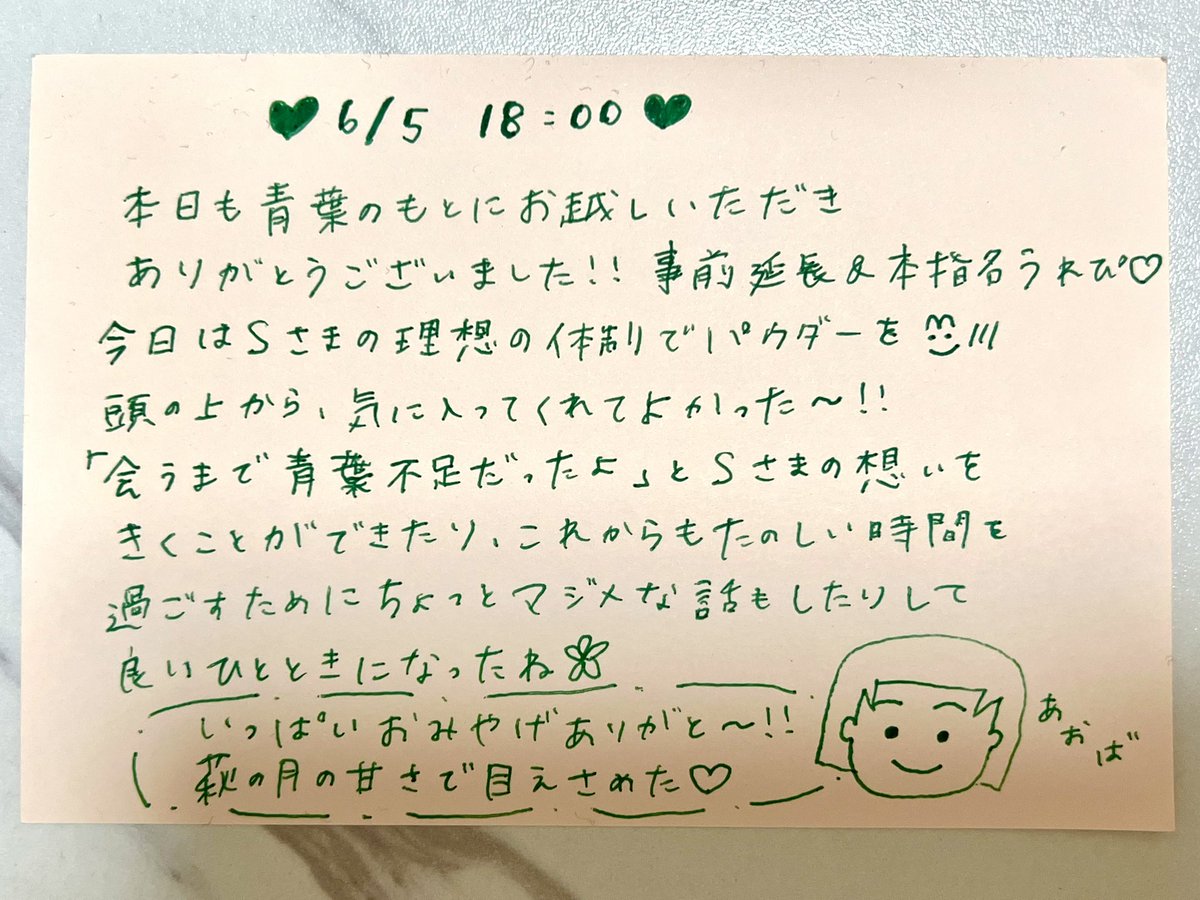 ♥6/5 18:00♥
本日も青葉のもとにお越しいただき
ありがとうございました!! 事前延長&本指名うれぴ♡
今日はSさまの理想の体制でパウダーを
頭の上から、気に入ってくれてよかった〜!!
「会うまで青葉不足だったよ」とSさまの想いを
きくことができたり、これからもたのしい時間を
過ごすためにちょっとマジメな話もしたりして
良いひとときになったね
いっぱいおみやげありがと〜!!
萩の月の甘さで目えさめた♡
あおば